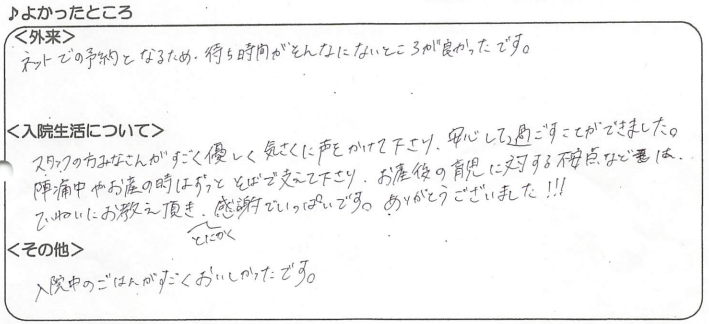 ♪よかったところ
<外来>
ネットでの予約となるため、待ち時間がそんなにないところが良かったです。
<入院生活について>
スタッフの方みなさんがすごく優しく気さくに声をかけて下さり、安心して過ごすことができました。
陣痛中やお産の時はずっとそばで支えて下さり、お産後の育児に対する不安点など は、
ていねいにお教え頂き、感謝でいっぱいです。ありがとうございました!!!
とにかく
<その他>
入院中のごはんがすごくおいしかったです。